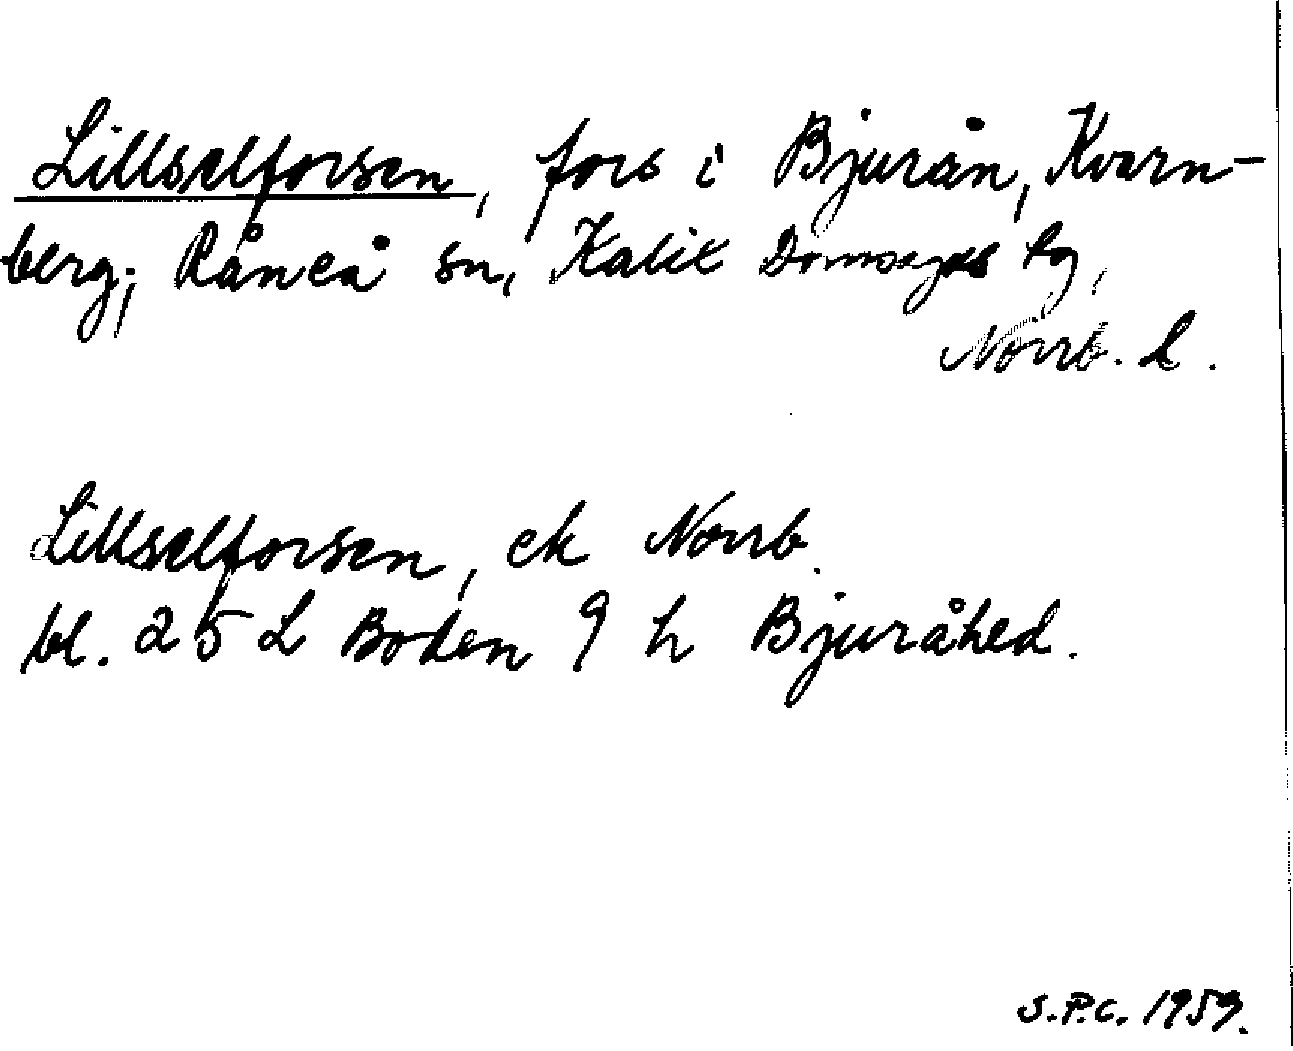 Lillselforsen, fors i Bjurån, Kvarn-
berg, Råneå sn, Kalix Domsagas tg,
Norrb. l.
Lillselforsen, ek Norrb.
bl. 25 L Boden 9 h Bjuråhed.
S.P.C. 1959.